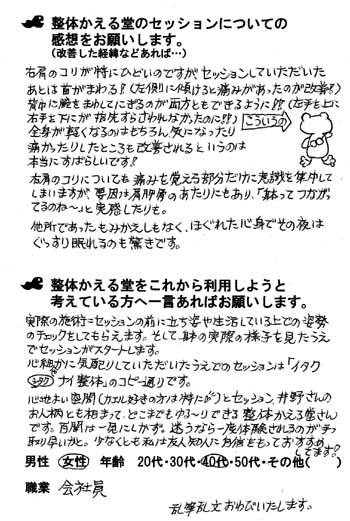 整体かえる堂のセッションについての
感想をお願いします。
(改善した経緯などあれば…)
右肩のコリが特にひどいのですがセッションしていただいた
あとは首がまわる?(左側に傾けると痛みがあったのが改善!)
背中に腕をまわしてにぎるのが両方ともできるように!?(左手を上に
右手を下にが指先すらさわれなかったのに!?)
こういうの
全身が軽くなるのはもちろん、気になったり
痛かったりしたところも改善されるというのは
本当にすばらしいです!
右肩のコリについても痛みを覚える部分だけに意識を集中して
しまいますが、要因は肩胛骨のあたりにもあり、「体ってつながっ
てるのね〜」と実感したりも。
他所であったもみかえしもなく、ほぐれた心身でその夜は
ぐっすり眠れるのも驚きです。
整体かえる堂をこれから利用しようと
考えている方へ一言あればお願いします。
実際の施術=セッションの前に立ち姿や生活している上での姿勢
のチェックをしてもらえます。そして、体の実際の様子を見たうえ
でセッションがスタートします。
心細かに気配りしていただいたうえでのセッションは「イタク
ナイ整体」のコピー通りです。
心地よい空間(カエル好きの方は特に)とセッション、井野さんの
お人柄とも相まって、どこまでもゆる〜りできる整体かえる堂さん
です。百聞は一見にしかず。迷うなら一度体験されるのが手っ
取り早いかと。少なくとも私は友人知人に力をもっておすすめ
してます!
男性 女性 年齢 20代・30代・40代・50代・その他( )
職業 会社員
乱筆乱文おわびいたします。